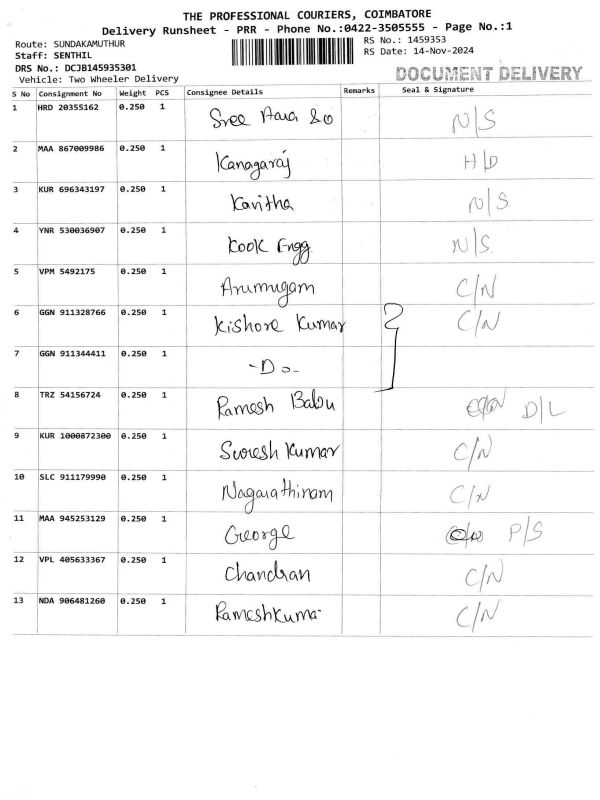 THE PROFESSIONAL COURIERS, COIMBATORE
Delivery Runsheet - PRR - Phone No.:0422-3505555 - Page No.:1
Route: SUNDAKAMUTHUR RS No.: 1459353
Staff: SENTHIL RS Date: 14-Nov-2024
DRS No.: DCJB145935301
Vehicle: Two Wheeler Delivery DOCUMENT DELIVERY
S No Consignment No Weight PCS Consignee Details Remarks Seal & Signature
1 HRD 20355162 0.250 1 Sree N/S
2 MAA 867009986 0.250 1 Kanagaraj H/D
3 KUR 696343197 0.250 1 Kavitha N/S
4 YNR 530036907 0.250 1 Kook Engg N/S
5 VPM 5492175 0.250 1 Arumugam C/N
6 GGN 911328766 0.250 1 Kishore Kumar C/N
7 GGN 911344411 0.250 1 -Do-
8 TRZ 54156724 0.250 1 Ramesh Babu D/L
9 KUR 1000872300 0.250 1 Suresh Kumar C/N
10 SLC 911179990 0.250 1 Nagarathinam C/N
11 MAA 945253129 0.250 1 George P/S
12 VPL 405633367 0.250 1 Chandran C/N
13 NDA 906481260 0.250 1 Rameshkumar C/N